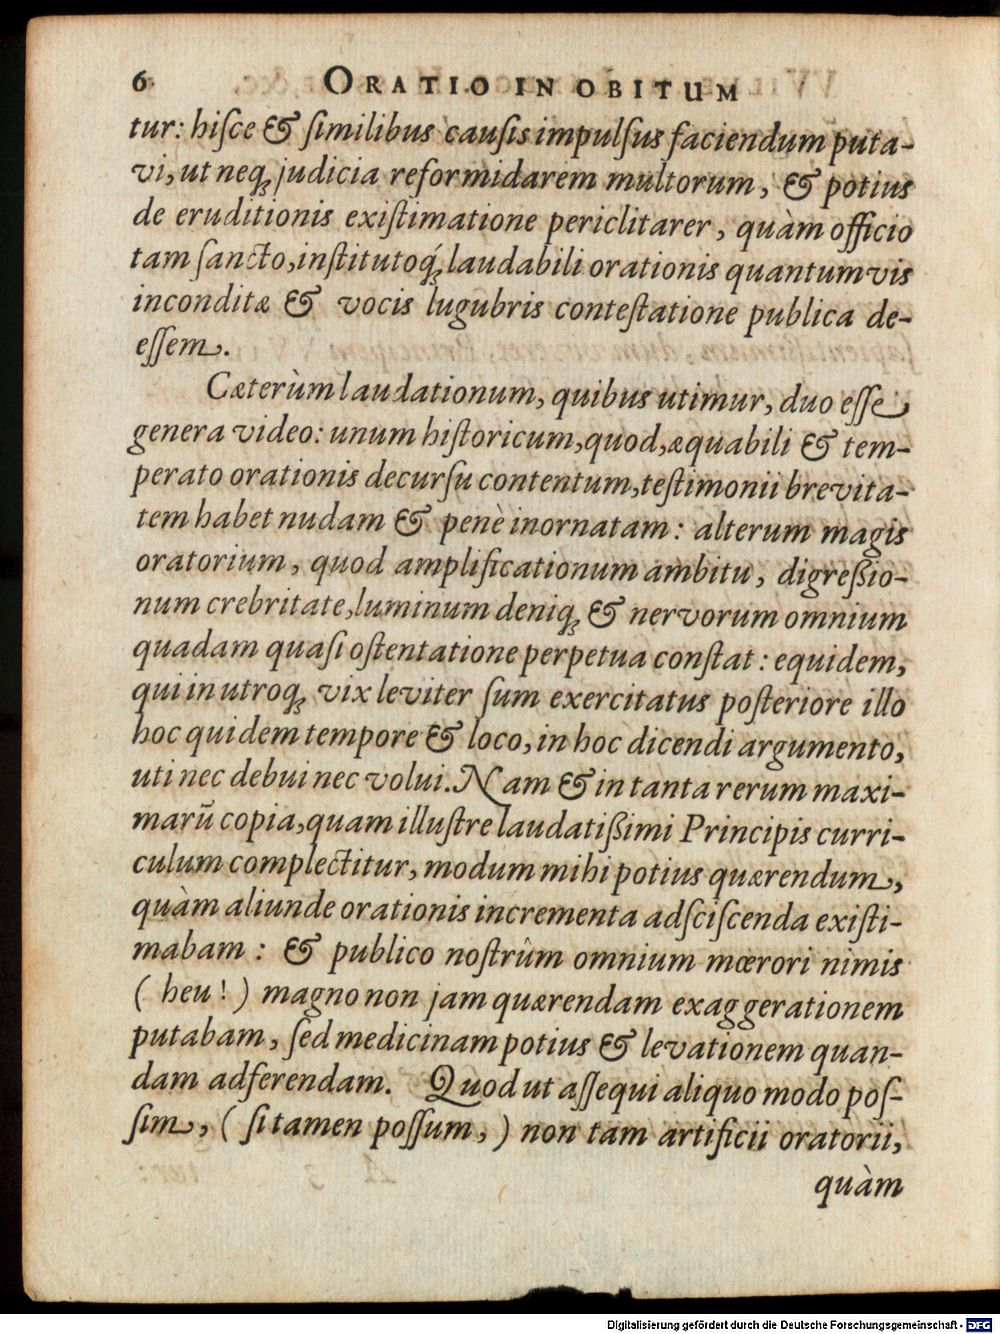 6 ORATIO IN OBITUM
tur: hiſce & ſimilibus cauſis impulſus faciendum puta-
vi, ut neqꝫ judicia reformidarem multorum, & potius
de eruditionis exiſtimatione periclitarer, quàm officio
tam ſancto, institutoqꝫ́ laudabili orationis quantumvis
inconditæ & vocis lugubris conteſtatione publica de-
eſſem.
Cæterùm laudationum, quibus utimur, duo eſſe
genera video: unum hiſtoricum, quod, æquabili & tem-
perato orationis decurſu contentum, teſtimonii brevita-
tem habet nudam & penè inornatam: alterum magis
oratorium, quod amplificationum ambitu, digreßio-
num crebritate, luminum deniqꝫ & nervorum omnium
quadam quaſi oſtentatione perpetua conſtat: equidem,
qui in utroqꝫ vix leviter ſum exercitatus poſteriore illo
hoc quidem tempore & loco, in hoc dicendi argumento,
uti nec debui nec volui. Nam & in tanta rerum maxi-
marū copia, quam illuſtre laudatißimi Principis curri-
culum complectitur, modum mihi potius quærendum,
quàm aliunde orationis incrementa adſciſcenda exiſti-
mabam: & publico noſtrûm omnium mœrori nimis
(heu!) magno non jam quærendam exaggerationem
putabam, ſed medicinam potius & levationem quan-
dam adferendam. Quod ut aſſequi aliquo modo poſ-
ſim, (ſi tamen poſſum,) non tam artificii oratorii,
quàm
Digitalisierung gefördert durch die Deutsche Forschungsgemeinschaft - DFG